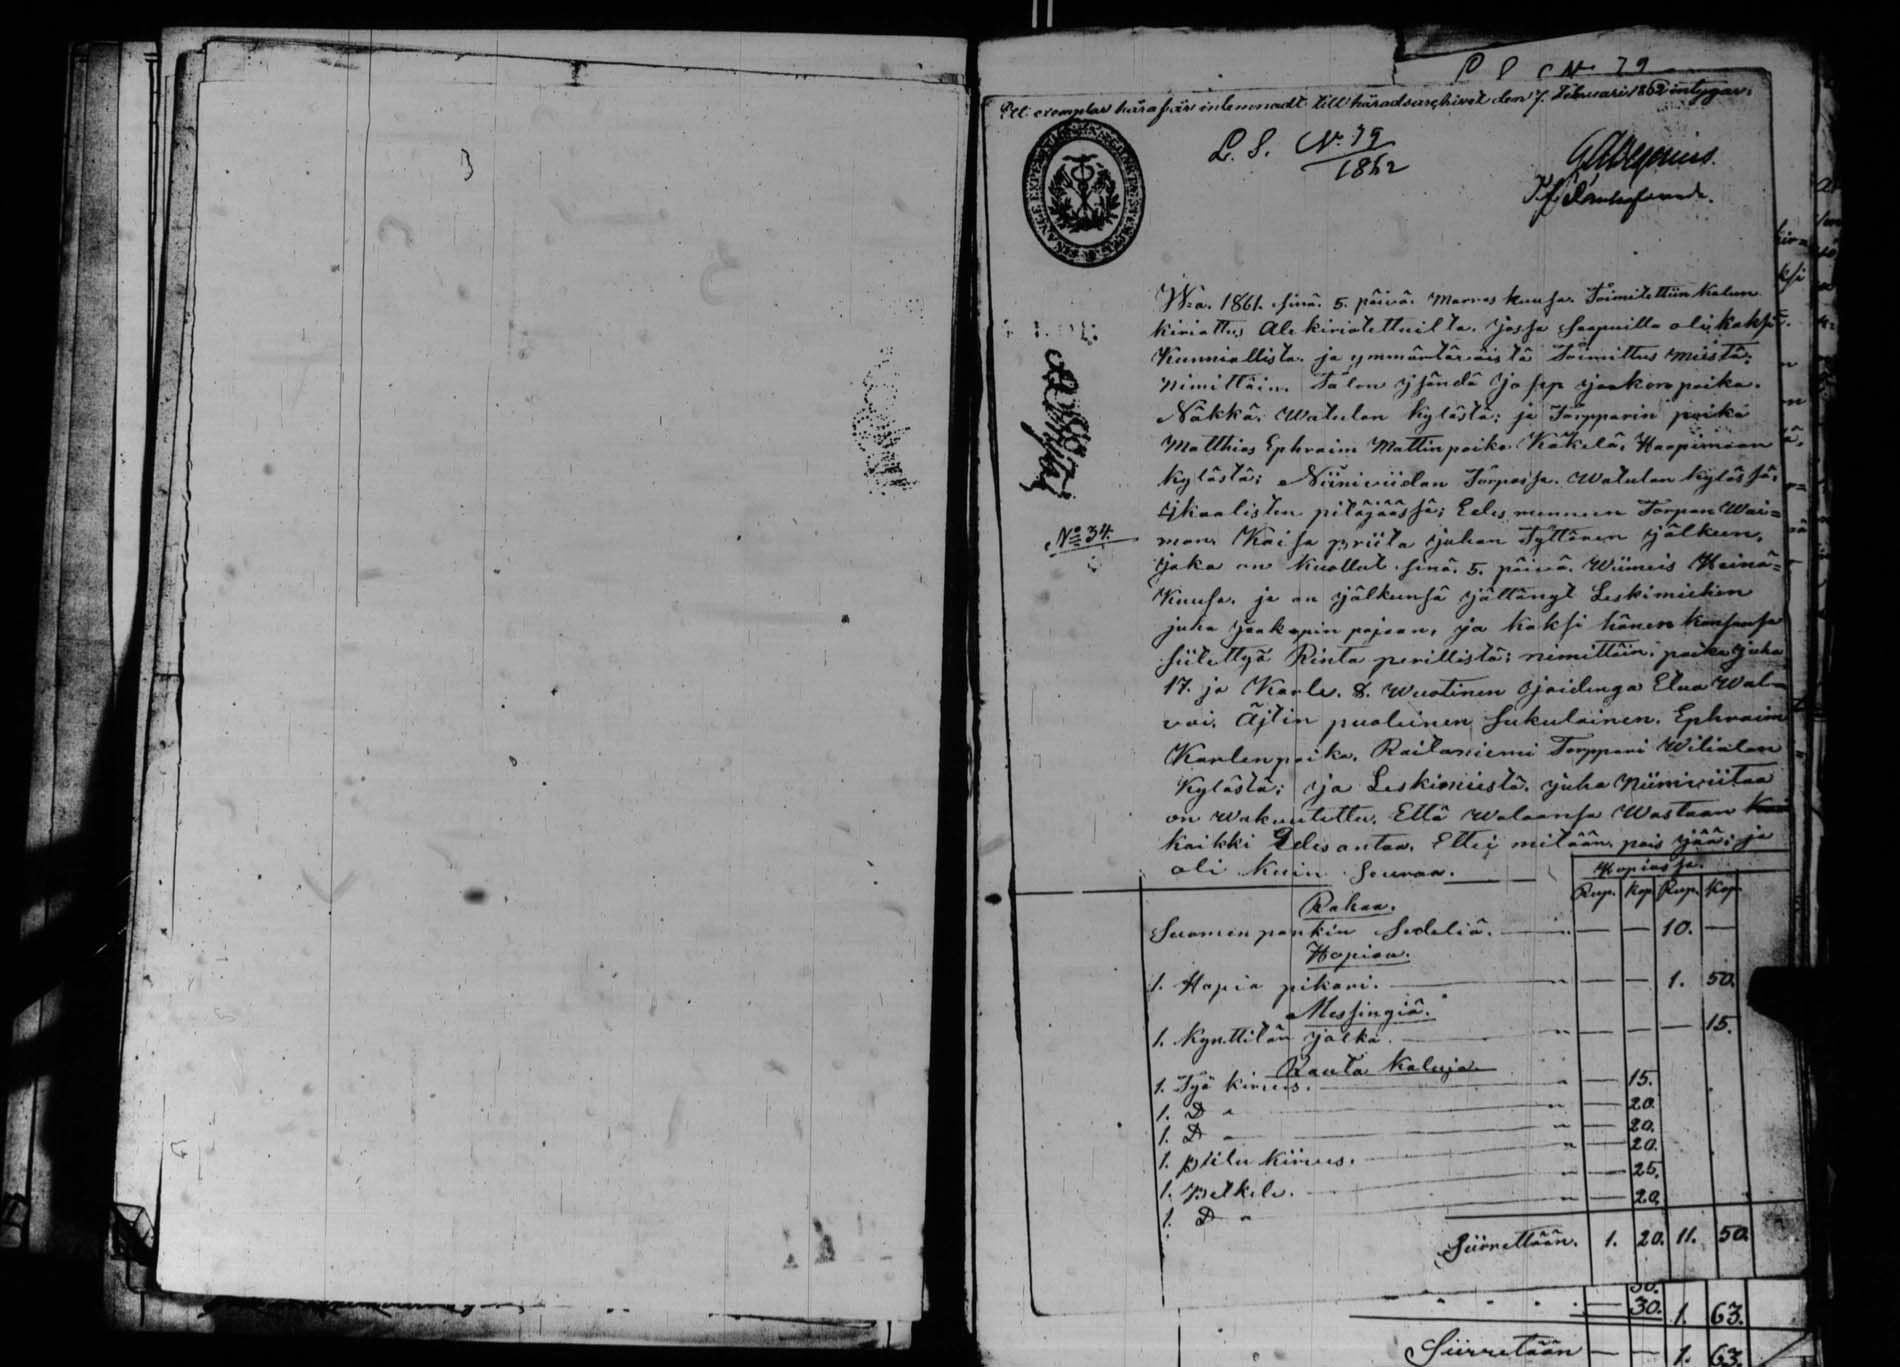 P S C No 79
Ett exemplar häraf är inlemnadt till häradsarchivet den 7. Februari 1862 intygar:
L. S. No. 79
1862
W:a. 1861. sinä. 5. päivä. Marras kuusa. Toimitettiin Kalun
kirioittus Ale kiriotettuilta. jossa saapuilla oli kaksi
Kunniallista ja ymmärtäväistä Toimittus miestä;
nimittäin. Talon jsändä Josep jaakon poika.
Näkkä. Watulan kylästä; ja Torpparin poika
Matthias Ephraim Mattin poika Käkelä. Haapimaan
kylästä; Niiniviidan Torpassa. Watulan kylässä;
jkaalisten pitäjäässä; Edes mennen Torpan Wai=
mon. Kaisa priita juhan Tyttären jälkeen,
joka on kuollut sinä. 5. päivä. Wiimeis Heinä=
Kuusa. ja on jälkeensä jättänyt Leskimiehen
juha jaakopin pojaan, ja kaksi hänen kansansa
siitettyä Rinta perillistä; nimittäin; poika juha
17. ja Karle. 8. Wuotinen joidenga Etua Wal=
voi. Äjtin puoleinen sukulainen. Ephraim
Karlen poika. Raitaniemi Torppari Wilialan
Kylästä; ja Leskimiestä. juha Niiniviitaa
on wakuutettu. Että walaansa Wastaan
kaikki Edes antaa. Ettei mitään pois jää; ja
oli kuin seuraa.
No 34.
Hopiassa.
Rup. Kop Rup. Kop.
Rahaa.
Suomen pankin Sedeliä. 10. —
Hopiaa.
1. Hopia pikari. 1. 50.
Messingiä.
1. Kynttilän jalka. 15.
Rauta Kaluja
1. Työ kirves. 15.
1. D " 20.
1. D 20.
1. piilu kirves. 20.
1. Petkele. 25.
1. D " 20.
Siirrettään. 1. 20. 11. 50.
30.
30. 1. 63.
Siirretään — — 1. 63.